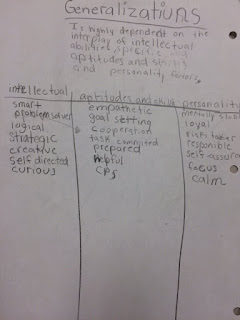 Generalizations
Is highly dependent on the
interplay of intellectual
abilities specific
aptitudes and skills
and personality factors.
intellectual aptitudes and skills personality
smart empathetic mentally stable
problem solver goal setting loyal
logical cooperation risk taker
strategic task commited responible
creative prepared self-assured
self directed helpful focus
curious cps calm